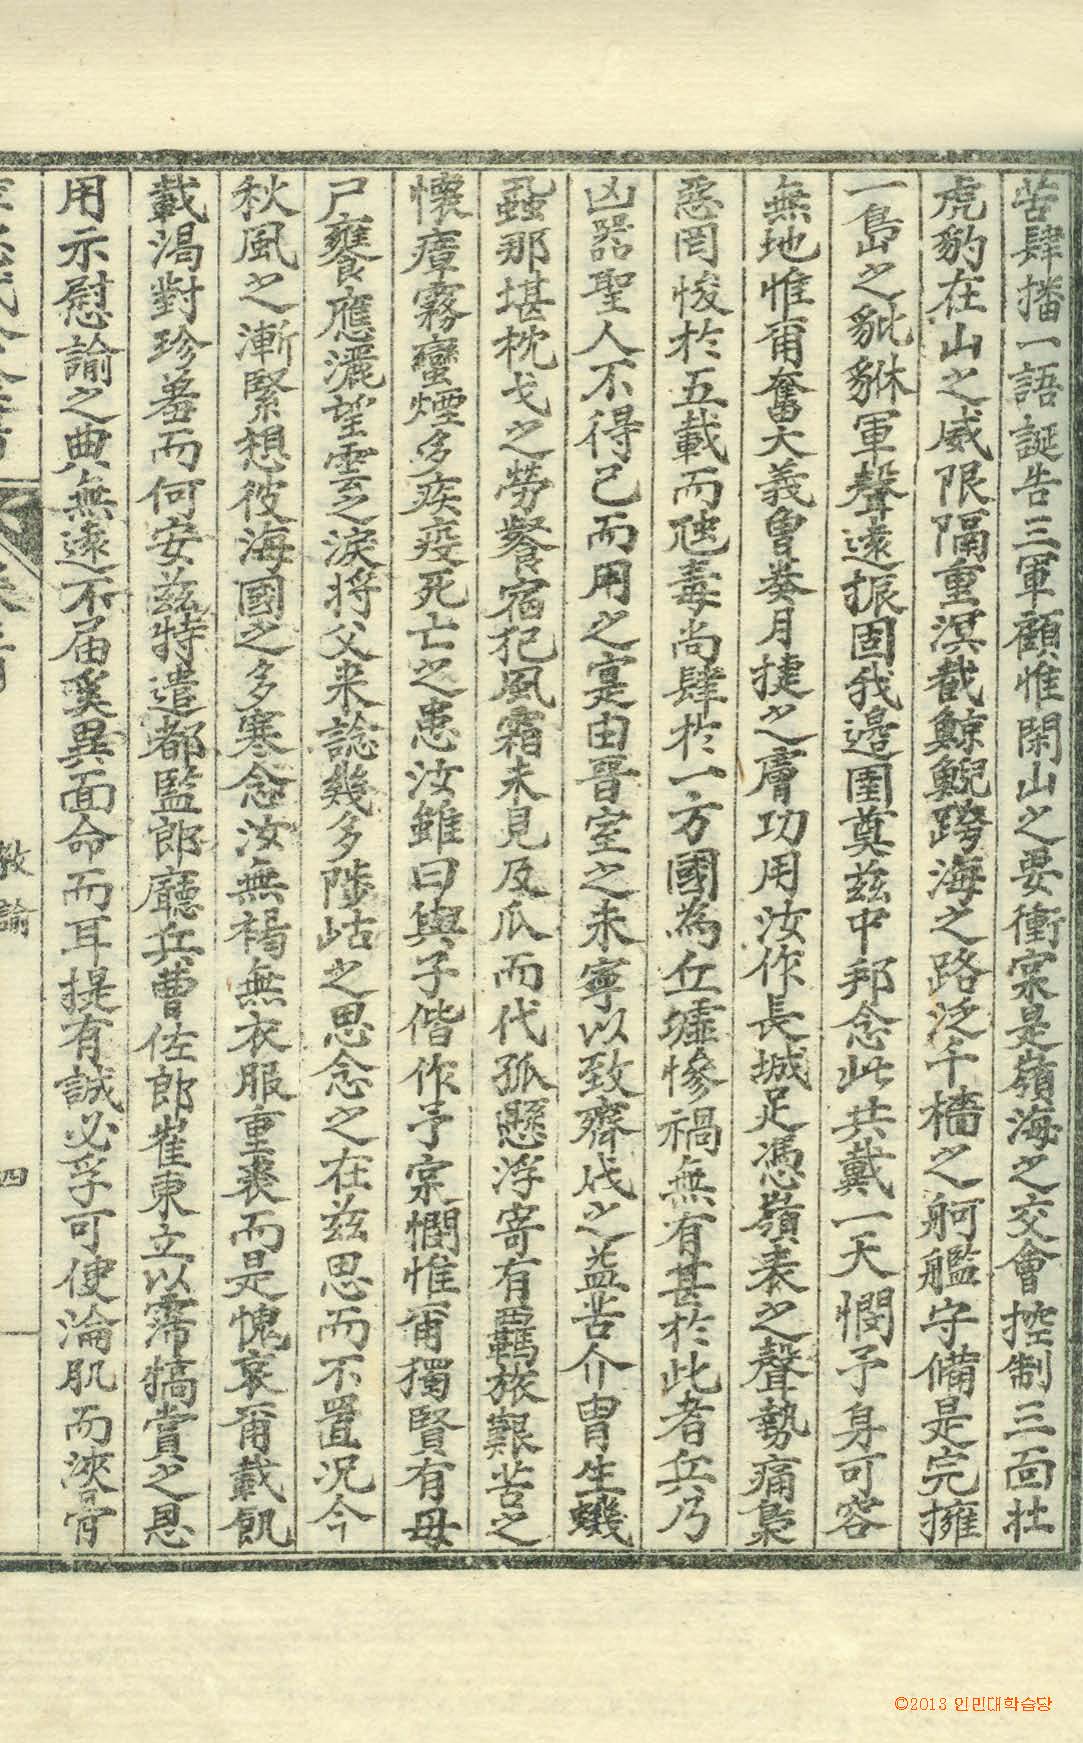 苦肆播一語誕告三軍顧惟閑山之要衝寔是嶺海之交會控制三面壯
虎豹在山之威限隔重溟截鯨鯢跨海之路泛千檣之舸艦守備是完擁
一島之貔貅軍聲遠振固我邊圉奠玆中邦念此共戴一天憫予身可容
無地惟爾奮大義曾癸月捷之膚功用汝作長城足憑嶺表之聲勢痛梟
惡罔悛於五載而虺毒尚肆於一方國為丘墟慘禍無有甚於此者兵乃
凶器聖人不得已而用之寔由晋室之未寧以致齊戍之益苦介胄生蟣
蝨那堪枕戈之勞餐宿犯風霜未見及瓜而代孤懸浮寄有羈旅艱苦之
懷瘴霧蠻煙多疾疫死亡之患汝雖曰與子偕作予寔憫惟爾獨賢有母
尸饔應灑望雲之淚將父来諗幾多陟岵之思念之在玆思而不置况今
秋風之漸緊想彼海國之多寒念汝無褐無衣服重裘而是愧哀爾載飢
載渴對珍羞而何安玆特遣都監郎廳兵曹佐郎崔東立以霈犒賞之恩
用示慰諭之典無遠不届奚異面命而耳提有誠必孚可使淪肌而浹骨
教諭
四
©2013 인민대학습당